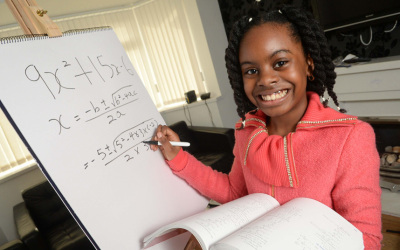 9x² + 15x - 6
x = -b ± √b² - 4ac
2a
= -5 ± √5² - 4×3×(-2)
2 × 3